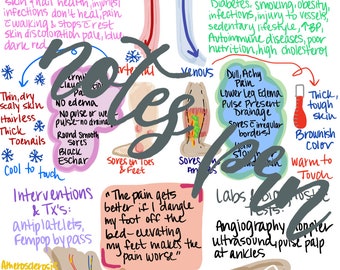 skin & nail health, injuries/
infections don't heal, pain
c walking & stops c rest
skin discoloration pale, blue
dark red
Diabetes, smoking, obesity,
infections, injury to vessels,
sedentary lifestyle, ↑BP,
Autoimmune diseases, poor
nutrition, high cholesterol
arterial
venous
notes pen
Thin, dry
scaly skin
Hairless
Thick
Toenails
Cool to touch
No edema
No pulse or weak
pulse- no drainage
Round Smooth
Sores
Black
Eschar
Sores on Toes &
Feet
Dull, Achy
Pain
Lower Leg Edema
Pulse Present
Drainage
Sores c irregular
borders
Sores on
Ankles
Thick,
tough
skin
Brownish
Color
Warm to
Touch
Interventions
& Tx's:
antiplatelets,
fempop bypass
Atherosclerosis
"The pain gets
better if I dangle
my foot off the
bed-elevating
my feet makes the
pain worse"
Labs
Tests:
Angiography, Doppler
ultrasound, pulse palp
at ankles